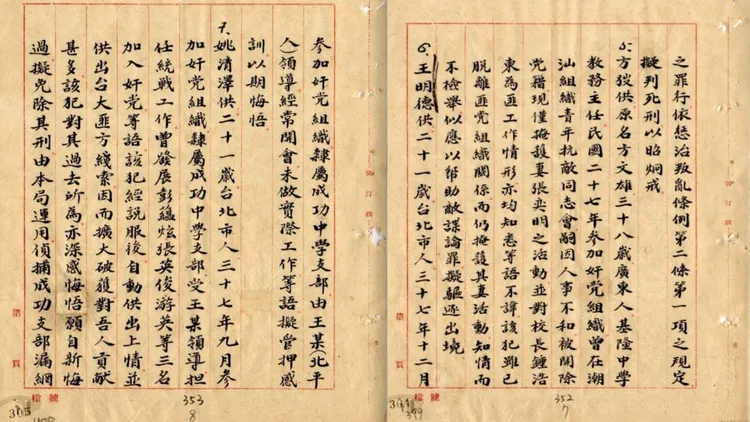 之罪行依懲治叛亂條例第二條第一項之規定
擬判死刑以昭炯戒
5、方弢供原名方文雄三十八歲廣東人基隆中學
教務主任民國二十七年參加奸党組織曾在潮
汕組織青年抗敵同志會嗣因人事不和被開除
党籍現僅掩護妻張奕明之活動並對校長鍾浩
東為匪工作情形亦均知悉等語不諱該犯雖已
脫離匪党組織關係而仍掩護其妻活動知情而
不檢舉似應以幫助敵諜論罪擬驅逐出境
6、王明德供二十一歲台北市人三十七年十二月
第 頁
檔號
352
7
參加奸党組織隸屬成功中學支部由王某(北平
人)領導經常開會未做實際工作等語擬管押感
訓以期悔悟
7、姚清澤供二十一歲台北市人三十七年九月參
加奸党組織隸屬成功中學支部受王某領導担
任統戰工作曾發展彭蘊炫張英俊游英等三名
加入奸党等語該犯經說服後自動供出上情並
供出台大匪方綫索因而擴大破獲對吾人貢獻
甚多該犯對其過去所為亦深感悔悟願自新悔
過擬免除其刑由本局運用偵捕成功支部漏網
第 頁
檔號
353
8